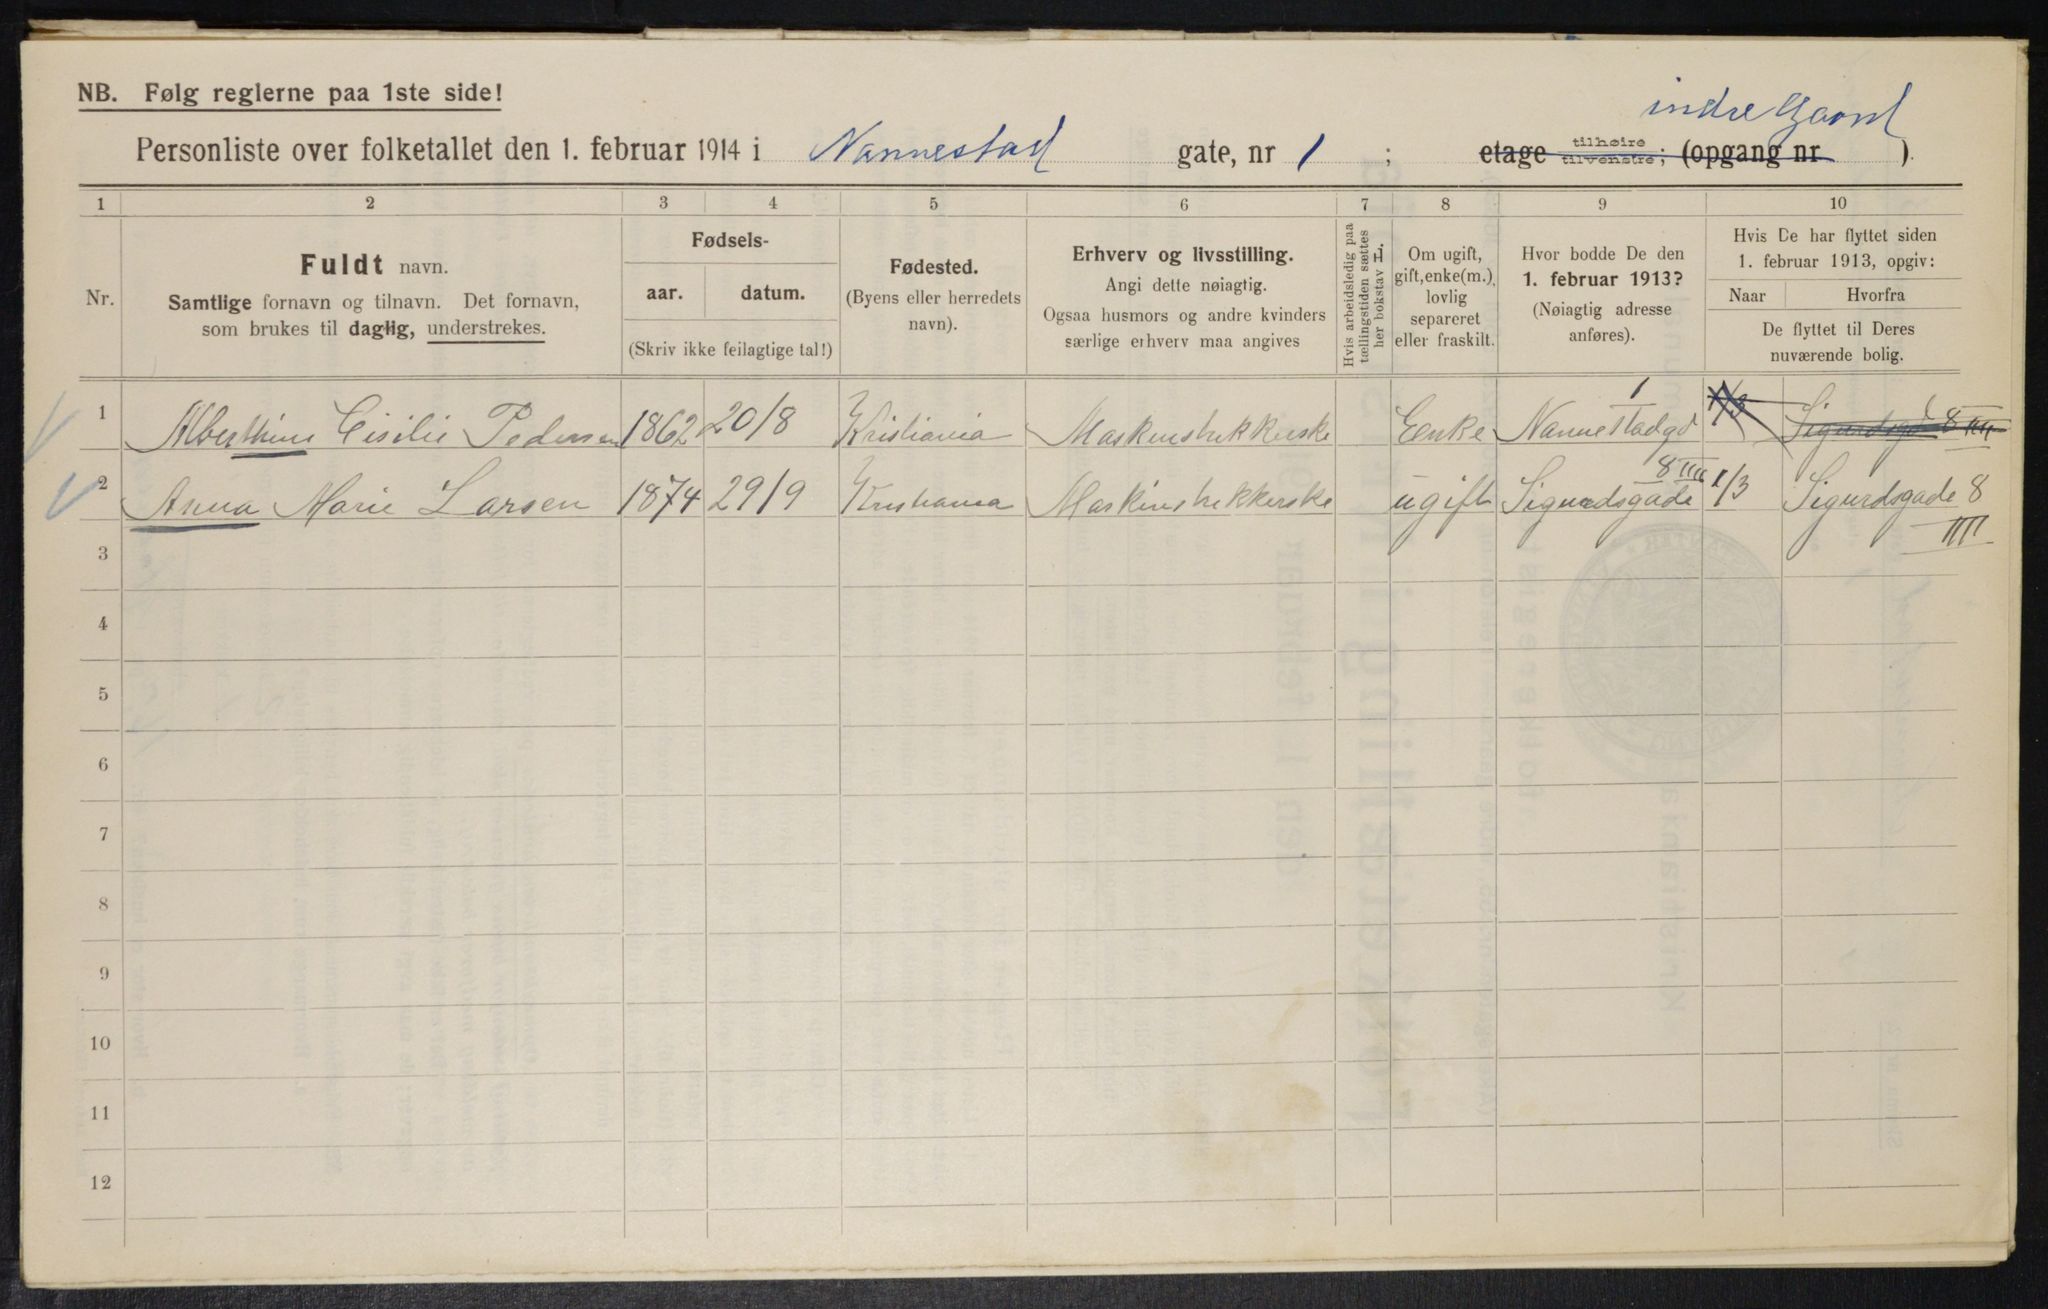 indre Gaard
NB. Følg reglerne paa 1ste side!
Personliste over folketallet den 1. februar 1914 i Nannestad gate, nr 1 ; etage tilhøire tilvenstre; (opgang nr ).
1 2 3 4 5 6 7 8 9 10
Nr.
Fuldt navn.
Samtlige fornavn og tilnavn. Det fornavn,
som brukes til daglig, understrekes.
Fødsels-
aar. datum.
(Skriv ikke feilagtige tal!)
Fødested.
(Byens eller herredets
navn).
Erhverv og livsstilling.
Angi dette nøiagtig.
Ogsaa husmors og andre kvinders
særlige erhverv maa angives
Hvis arbeidsledig paa
tællingstiden sættes
her bokstav L.
Om ugift,
gift, enke(m.),
lovlig
separeret
eller fraskilt.
Hvor bodde De den
1. februar 1913?
(Nøiagtig adresse
anføres).
Hvis De har flyttet siden
1. februar 1913, opgiv:
Naar Hvorfra
De flyttet til Deres
nuværende bolig.
1 Alberthine Cisilie Pedersen 1862 20/8 Kristiania Maskinstrikkerske Enke Nannestadgd 1 1/3 Sigurdsgd 8 IIII
2 Anna Marie Larsen 1874 29/9 Kristiania Maskinstrikkerske ugift Sigurdsgade 8 IIII 1/3 Sigurdsgade 8
IIII
3
4
5
6
7
8
9
10
11
12